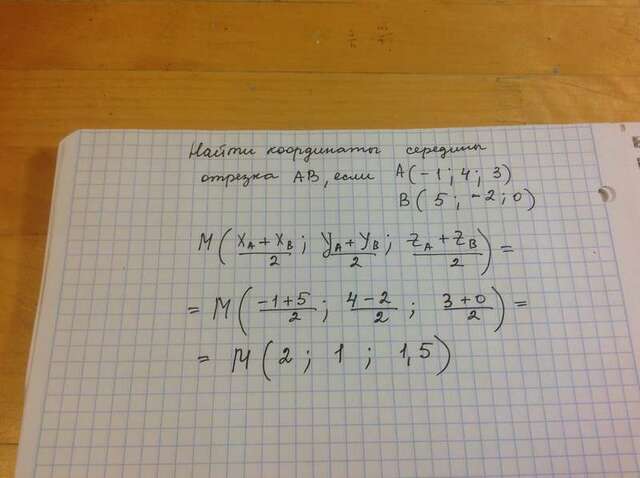 Найти координаты середины
отрезка AB, если A(-1; 4; 3)
B(5; -2; 0)
M((x_A + x_B)/2; (y_A + y_B)/2; (z_A + z_B)/2) =
= M((-1+5)/2; (4-2)/2; (3+0)/2) =
= M(2; 1; 1,5)